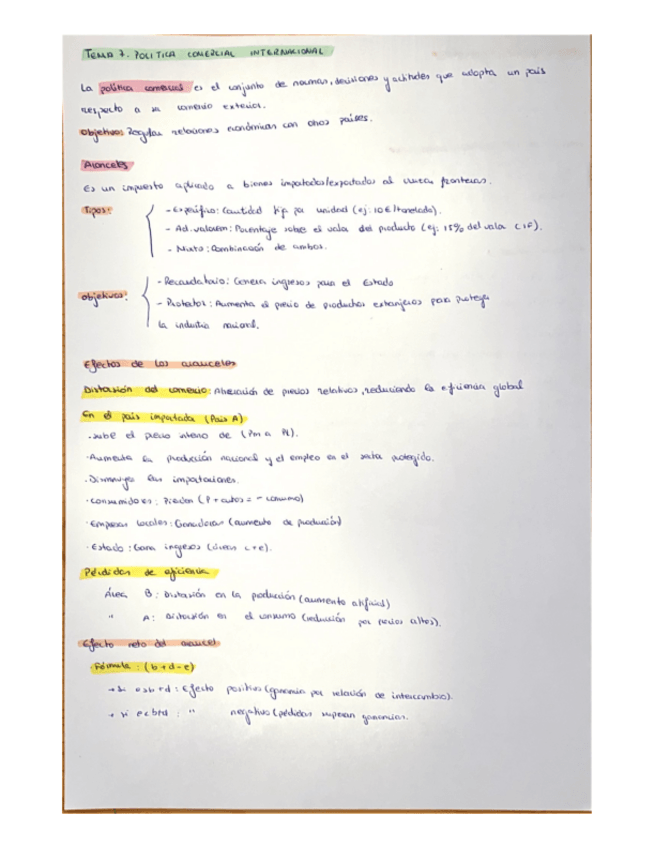 TEMA 7. POLITICA COMERCIAL INTERNACIONAL
La política comercial es el conjunto de normas, decisiones y actitudes que adopta un país
respecto a su comercio exterior.
Objetivo: Regular relaciones económicas con otros países.
Aranceles
Es un impuesto aplicado a bienes importados/exportados al cruzar fronteras.
Tipos:
- Específico: Cantidad fija por unidad (ej: 10€/tonelada).
- Ad. valorem: Porcentaje sobre el valor del producto (ej: 15% del valor CIF).
- Mixto: Combinación de ambos.
Objetivos:
- Recaudatorio: Genera ingresos para el Estado
- Protector: Aumenta el precio de productos extranjeros para proteger
la industria nacional.
Efectos de los aranceles
Distorsión del comercio: Alteración de precios relativos, reduciendo la eficiencia global
En el país importador (País A)
· Sube el precio interno de (Pm a Pt).
· Aumenta la producción nacional y el empleo en el sector protegido.
· Disminuyen las importaciones.
· Consumidores: Pierden (P + altos = - consumo)
· Empresas locales: Ganadoras (aumento de producción)
· Estado: Gana ingresos (áreas c+e).
Pérdidas de eficiencia
Área B: Distorsión en la producción (aumento artificial)
" A: Distorsión en el consumo (reducción por precios altos).
Efecto neto del arancel
· Fórmula: (b+d-e)
→ Si e>b+d: Efecto positivo (ganancia por relación de intercambio).
→ Si e<b+d: " negativo (pérdidas superan ganancias.